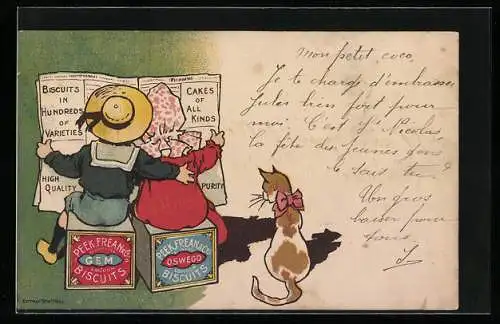 BISCUITS
IN
HUNDREDS
OF
VARIETIES
HIGH
QUALITY
CAKES
OF
ALL
KINDS
PURITY
PEEK, FREAN & Co's
GEM
BISCUITS
PEEK, FREAN & Co's
OSWEGO
BISCUITS
Mon petit coco
Je te charge d'embrasser
Jules bien fort pour
moi C'est St Nicolas
la fête des jeunes gens
le sais tu?
Un gros
baiser pour
tous.
J